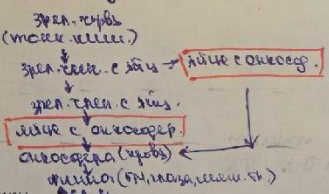 зрел. червь
(тонк. киш.)
зрел. член. с яйц → яйцо с онкосф.
зрел. член. с яйц.
яйцо с онкосфер.
онкосфера (кровь)
финна (гм, глаза, мыш.